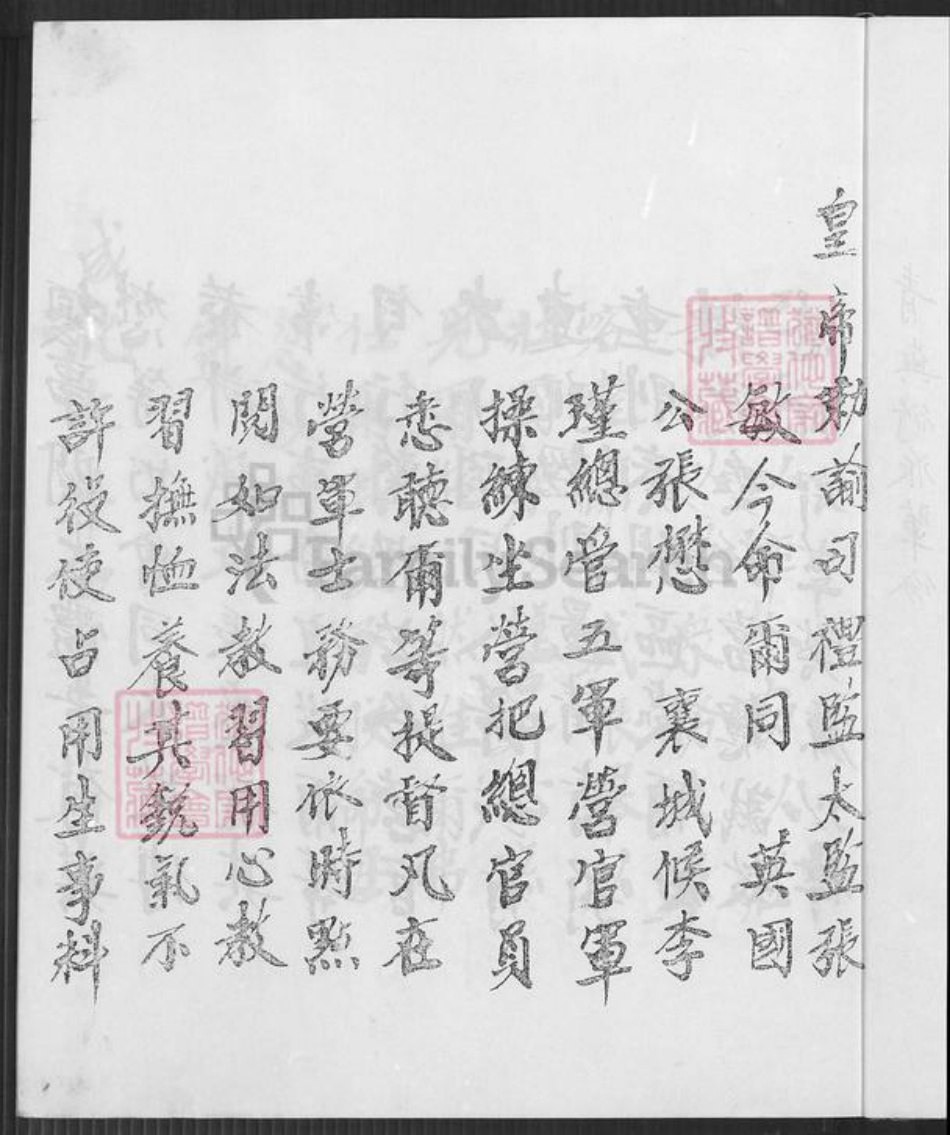 皇帝勅諭司禮監太監張
敏今命爾同 英國
公張懋 襄城候李
瑾總管五軍營官軍
操練坐營把總官員
悉聽爾等提督凡在
營軍士務要依時點
閱如法教習用心教
習撫恤養其銳氣不
許役使占用生事科
FamilySearch